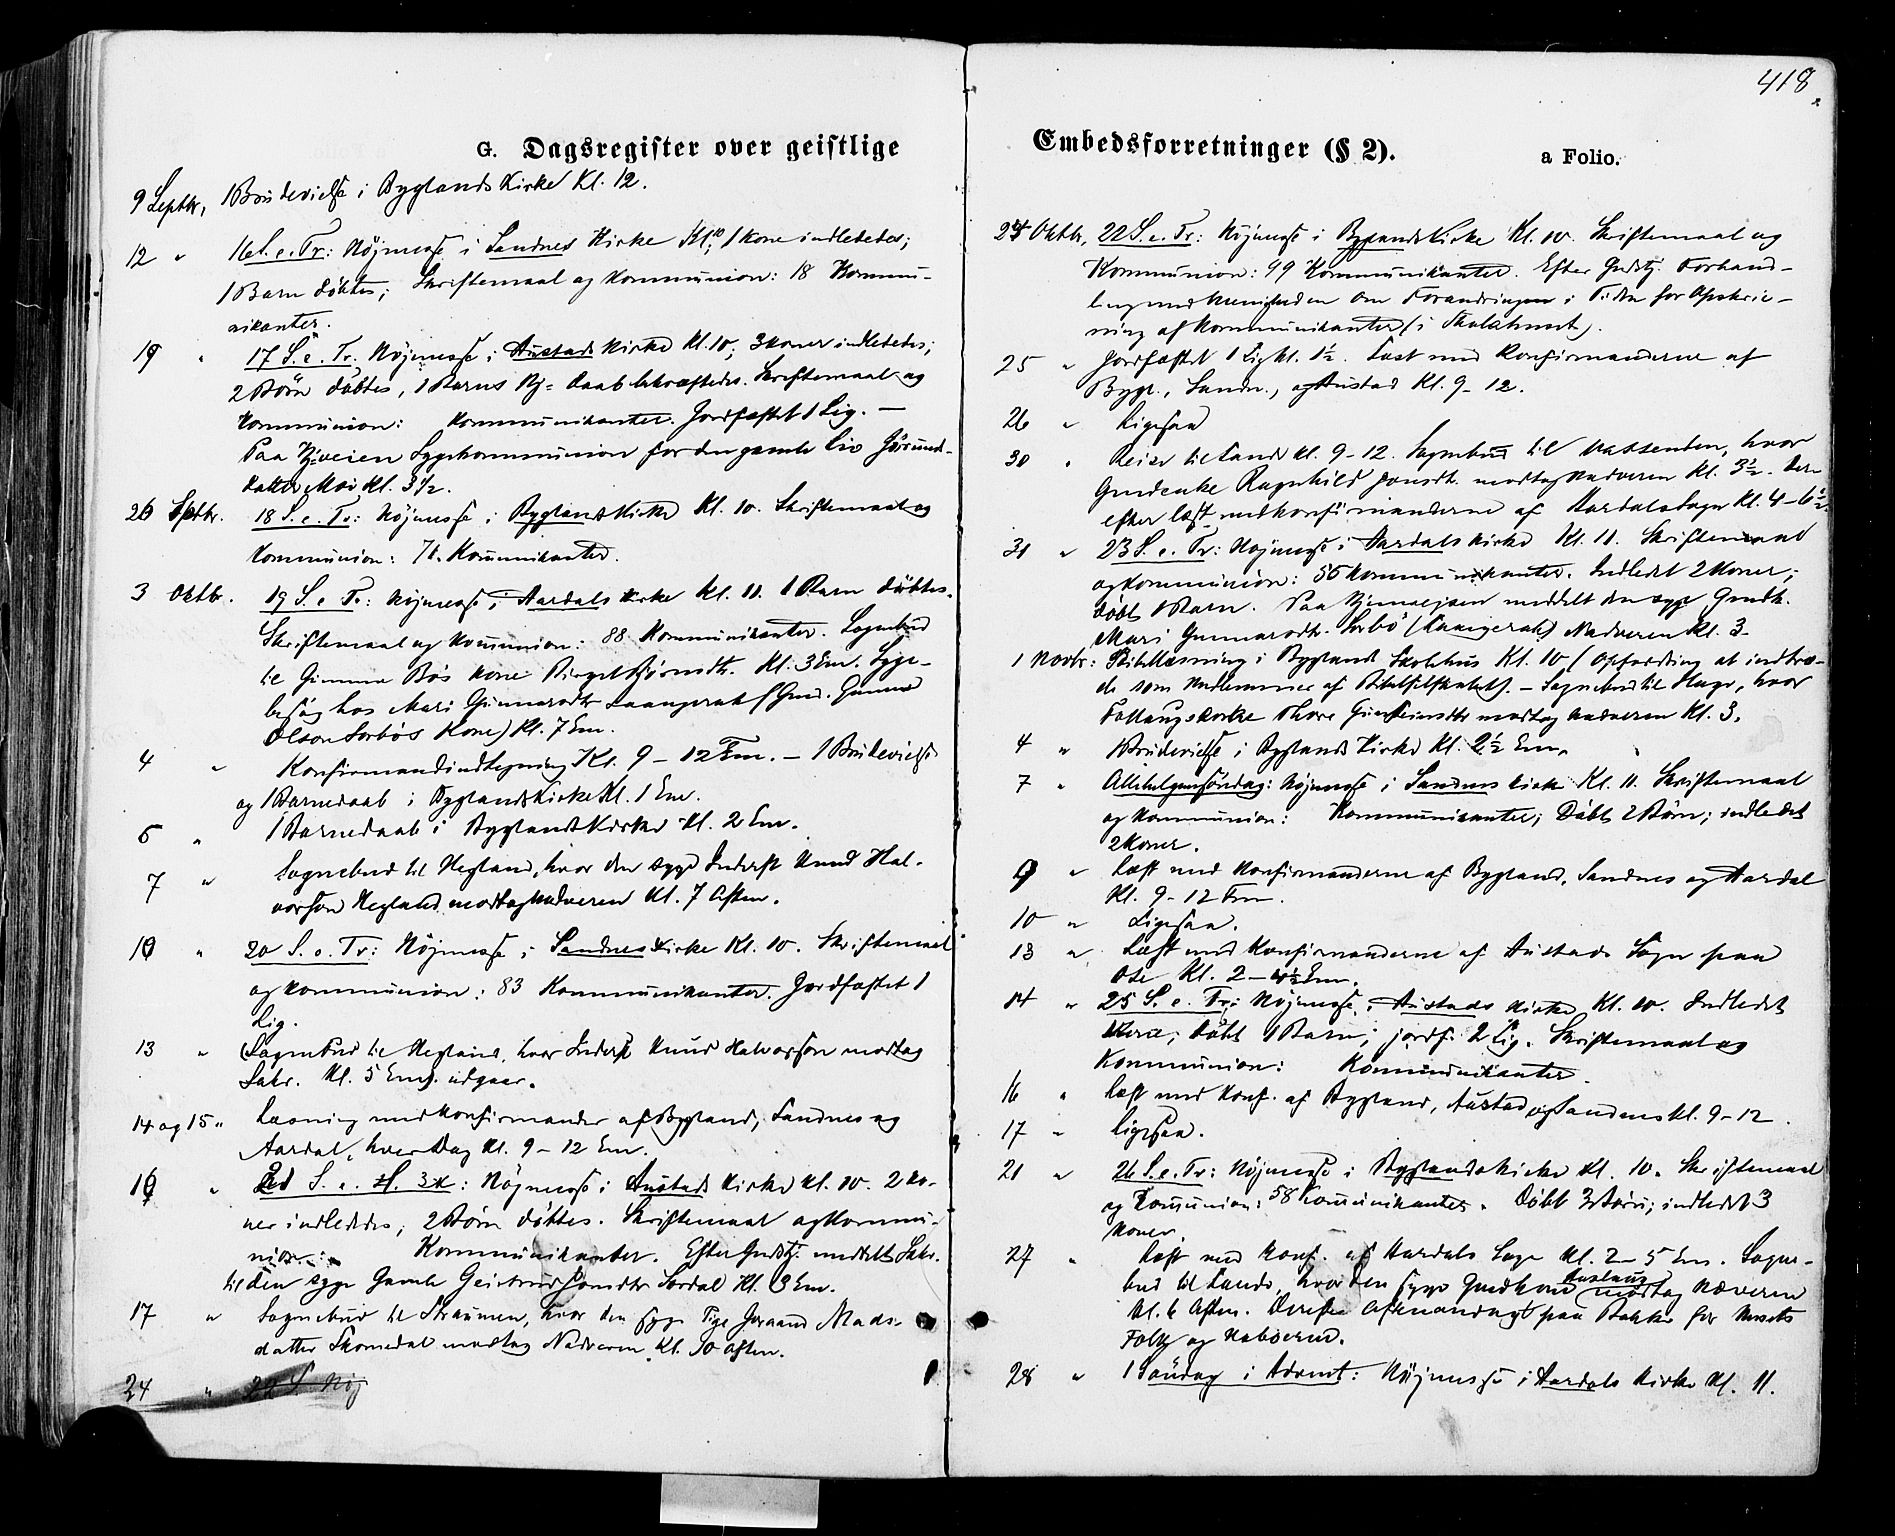 418
G. Dagsregister over geistlige
9 Septbr, 1 Brudevielse i Byglands Kirke Kl. 12.
12 " 16 S. e. Tr: Højmesse i Sandnes Kirke Kl. 10, 1 Kone indlededes;
1 Barn døbtes; Skriftemaal og Kommunion: 18 Kommu-
nikanter.
19 " 17 S. e. Tr. Højmesse i Austads Kirke Kl. 10; 3 Koner indlededes;
2 Børn døbtes, 1 Barns Hj=daab bekræftedes. Skriftemaal og
Kommunion: Kommunikanter. Jordfæstet 1 Lig. —
Paa Hjveien Sygekommunion for den gamle Liv
datter Moi Kl. 3½.
26 Septbr. 18 S. e. Tr: Højmesse i Byglands Kirke Kl. 10. Skriftemaal og
Kommunion: Kommunikanter.
3 Oktb. 19 S. e. Tr: Højmesse i Aardals Kirke Kl. 11. 1 Barn døbtes.
Skriftemaal og Kommunion: 88 Kommunikanter. Sognebud
til Gunnar Bøs Kone Birgit Bjørnsdtr. Kl. 3 Em. Syge-
besøg hos Mari Gunnarsdtr Laangerak (Grd. Gunnar
Olson Sorbøs Kone) Kl. 7 Em.
4 " Konfirmandindtegning Kl. 9 – 12 Fm. – 1 Brudevielse
og 1 Barnedaab i Byglands Kirke Kl. 1 Em.
5 " 1 Barnedaab i Byglands Kirke Kl. 2 Em.
7 " Sognebud til Hegland, hvor den syge Inderst Knud Hal-
vorson Hegland modtog Nadveren Kl. 7 Aften.
10 " 20 S. e. Tr: Højmesse i Sandnes Kirke Kl. 10. Skriftemaal
og Kommunion: 83 Kommunikanter. Jordfæstet 1
Lig.
13 " (Sognebud til Hegland, hvor Inderst Knud Halvorson modtog
Sakr. Kl. 5 Em). udgaar.
14 og 15 " Læsning med Konfirmander af Bygland, Sandnes og
Aardal, hver Dag Kl. 9 – 12 Em.
S. e. : Højmesse i Austads Kirke Kl. 10. 2 Ko-
ner indlededes, 2 Børn døbtes. Skriftemaal og Kommu-
nion: Kommunikanter. Efter Gudstj. meddelt Sakr.
til den syge Gamle Kl. 3 Em.
17 " Sognebud til Straumen, hvor den syge Pige Mads-
datter Skomedal modtog Nadveren Kl. 10 Aften.
24 " 22 S. Høj
Embedsforretninger (§ 2).
a Folio.
24 Oktbr, 22 S. e. Tr: Højmesse i Byglands Kirke Kl. 10. Skriftemaal og
Kommunion: 99 Kommunikanter. Efter Gudstj. Forhand-
ling med Menigheden om Forandringen i Tiden for Opskriv-
ning af Kommunikanter (i Skolehuset).
25 " Jordfæstet 1 Lig Kl. 1½. Læst med Konfirmanderne af
Bygl., Sandn., og Austad Kl. 9 – 12.
26 " Ligesaa
30 " Reise til Sand Kl. 9 – 12. Sognebud til Vassenden, hvor
Gmdenke Ragnhild modtog Nadveren Kl. 3½. Der-
efter læst med Konfirmanderne af Aardals Sogn Kl. 4 – 6½.
31 " 23 S. e. Tr: Højmesse i Aardals Kirke Kl. 11. Skriftemaal
og Kommunion: 55 Kommunikanter. Indledet 2 Koner;
døbt 1 Barn. Paa Hjemveien meddelt den syge Gmdk.
Mari Gunnarsdtr. Sorbø (Laangerak) Nadveren Kl. 3.
1 Novbr: Bibellæsning i Byglands Skolehus Kl. 10 (Opfordring at indtræ-
de som Medlemmer af Bibelselskabet). – Sognebud til Hage, hvor
Thore modtog Nadveren Kl. 3.
4 " 1 Brudevielse i Byglands Kirke Kl. 2½ Em.
7 " Allehelgensøndag: Højmesse i Sandnes Kirke Kl. 11. Skriftemaal
og Kommunion: Kommunikanter; Døbt 2 Børn; indledet
2 Koner.
9 " Læst med Konfirmanderne af Bygland, Sandnes og Aardal
Kl. 9 – 12 Fm.
10 " Ligesaa.
13 " Læst med Konfirmanderne af Austads Sogn paa
Ose Kl. 2 – 4½ Em.
14 " 25 S. e. Tr: Højmesse i Austads Kirke Kl. 10. Indledet
Kone; døbt 1 Barn; jordf. 2 Lig. Skriftemaal og
Kommunion: Kommunikanter.
16 " Læst med Konf. af Bygland, Austad og Sandnes Kl. 9 – 12.
17 " Ligesaa.
21 " 26 S. e. Tr: Højmesse i Byglands Kirke Kl. 10. Skriftemaal
og Kommunion: 58 Kommunikanter. Døbt 3 Børn; indledet 3
Koner.
27 " Læst med Konf. af Aardals Sogn Kl. 2 – 5 Em. Sogne-
bud til Sande, hvor den syge Gmdkone Aaslaug modtog Nadveren
Kl. 6 Aften. Derefter paa Bakke for
Folk og Naboerne.
28 " 1 Søndag i Advent: Højmesse i Aardals Kirke Kl. 11.